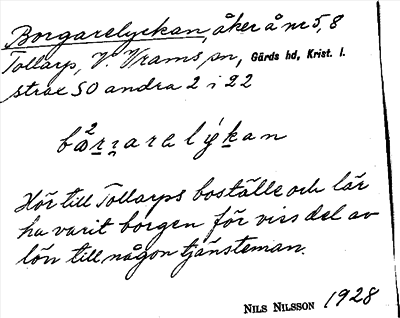 Borgarelyckan, åker å nr 5, 8
Tollarp, V. Vrams sn, Gärds hd, Krist. l.
strax SO andra 2 i 22
Hör till Tollarps boställe och lär
ha varit borgen för viss del av
lön till någon tjänsteman.
NILS NILSSON 1928